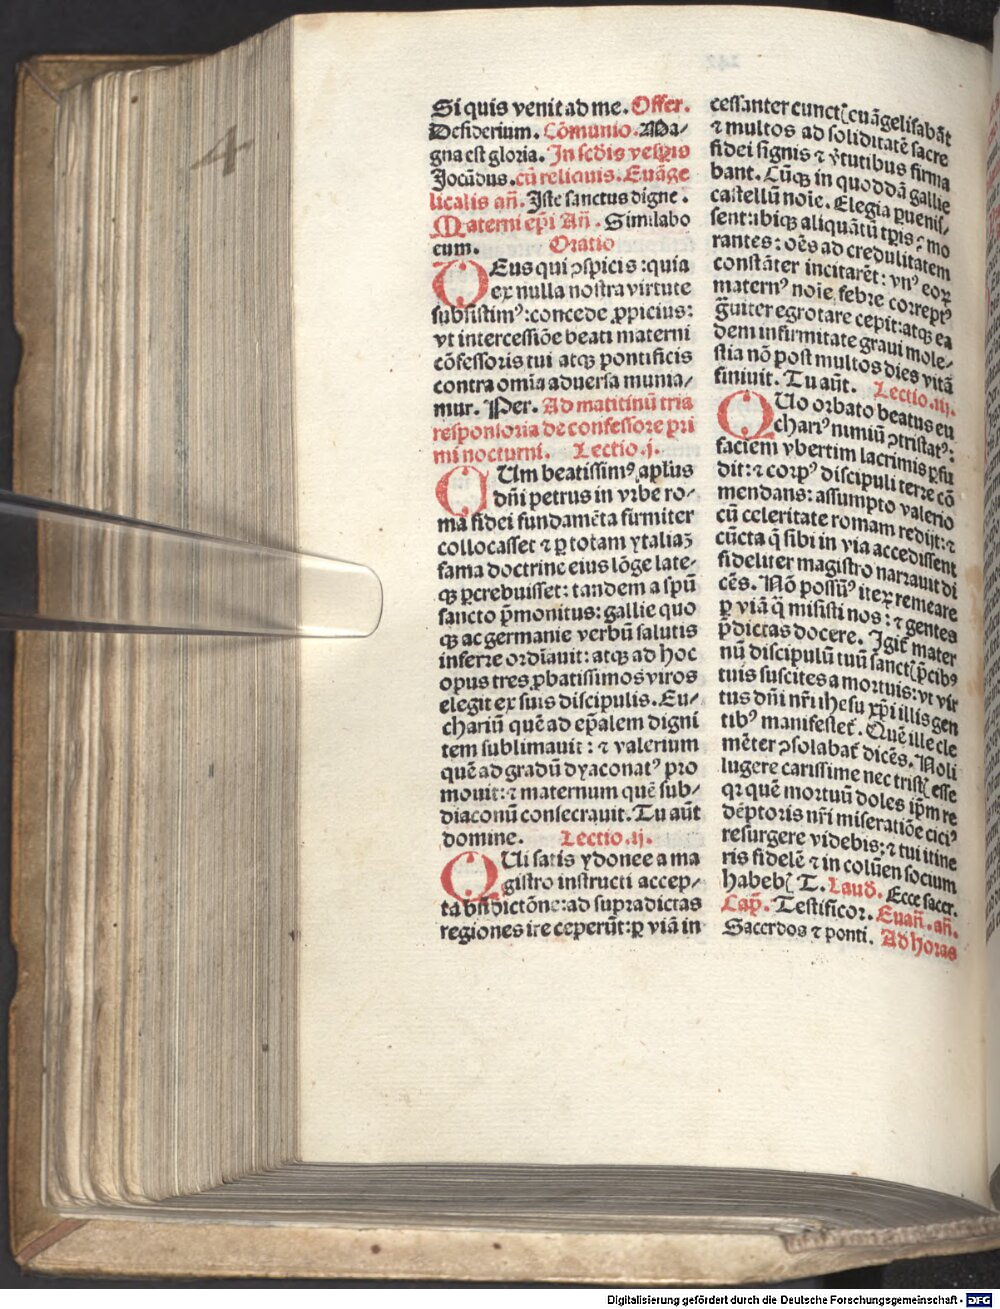 4
Si quis venit ad me. Offer.
Desiderium. Cōmunio. Ma⸗
gna est gloria. In scd̄is vespis
Jocūdus. cū reliquis. Euāge
licalis an̄. Iste sanctus digne.
Materni ep̄i An̄. Similabo
eum. Oratio
DEus qui ꝯspicis: quia
ex nulla nostra virtute
subsistimꝰ: concede ꝓpicius:
vt intercessiōe beati materni
cōfessoris tui atqꝫ pontificis
contra omīa aduersa munia⸗
mur. Per. Ad matitinū tria
responsoria de confessore pri
mi nocturni. Lectio .j.
CUm beatissimꝰ apl̄us
dn̄i petrus in vrbe ro⸗
ma fidei fundamēta firmiter
collocasset ⁊ ꝑ totam ytaliaꝫ
fama doctrine eius lōge late⸗
qꝫ ꝑcrebuisset: tandem a spū
sancto p̄monitus: gallie quo
qꝫ ac germanie verbū salutis
inferre ordīauit: atqꝫ ad hoc
opus tres ꝓbatissimos viros
elegit ex suis discipulis. Eu⸗
chariū quē ad ep̄alem digni
tem sublimauit: ⁊ valerium
quē ad gradū dyaconatꝰ pro
mouit: ⁊ maternum quē sub⸗
diaconū consecrauit. Tu aūt
domine. Lectio .ij.
QUi satis ydonee a ma
gistro instructi accep⸗
ta bn̄dictōne: ad supradictas
regiones ire ceperūt: ꝑ viā in
cessanter cunctꝭ euāgelisabāt
⁊ multos ad soliditatē sacre
fidei signis ⁊ v̄tutibus firma
bant. Cūqꝫ in quoddā gallie
castellū noīe. Elegia ꝑuenis⸗
sent: ibiqꝫ aliquātū tp̄is ꝯmo
rantes: oēs ad credulitatem
constāter incitarēt: vnꝰ eoꝝ
maternꝰ noīe febre correptꝰ
ḡuiter egrotare cepit: atqꝫ ea
dem infirmitate graui mole⸗
stia nō post multos dies vitā
finiuit. Tu aūt. Lectio .iij.
QUo orbato beatus eu
chariꝰ nimiū ꝯtristatꝰ:
faciem vbertim lacrimis ꝑfu
dit: ⁊ corpꝰ discipuli terre cō
mendans: assumpto valerio
cū celeritate romam redijt: ⁊
cūcta q̄ sibi in via accedissent
fideliter magistro narrauit di
cēs. Nō possūꝰ iteꝝ remeare
ꝑ viā q̄ misisti nos: ⁊ gentes
p̄dictas docere. Igit̄ mater
nū discipulū tuū sanctꝭ p̄cibꝰ
tuis suscites a mortuis: vt vir
tus dn̄i nr̄i ihesu xp̄i illis gen
tibꝰ manifestet̄. Quē ille cle
mēter ꝯsolabat̄ dicēs. Noli
lugere carissime nec tristꝭ esse
qꝛ quē mortuū doles ip̄m re
dēptoris nr̄i miseratiōe ciciꝰ
resurgere videbis: ⁊ tui itine
ris fidelē ⁊ in colūen socium
habebꝭ T. Laud̄. Ecce sacer.
Cap̄. Testificor. Euan̄. an̄.
Sacerdos ⁊ ponti. Ad horas
Digitalisierung gefördert durch die Deutsche Forschungsgemeinschaft - DFG